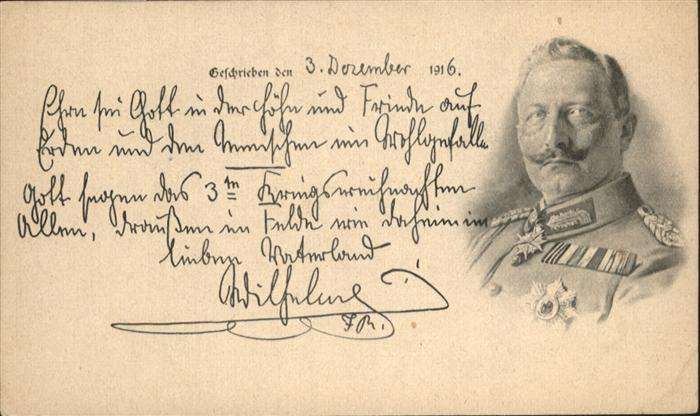 Geschrieben den 3. Dezember 1916.
Ehre sei Gott in der Höhe und Friede auf
Erden und den Menschen ein Wohlgefallen
Gott segen das 3te Kriegsweihnachten
Allen, draußen im Felde wie daheim im
lieben Vaterland
Wilhelm
I.R.